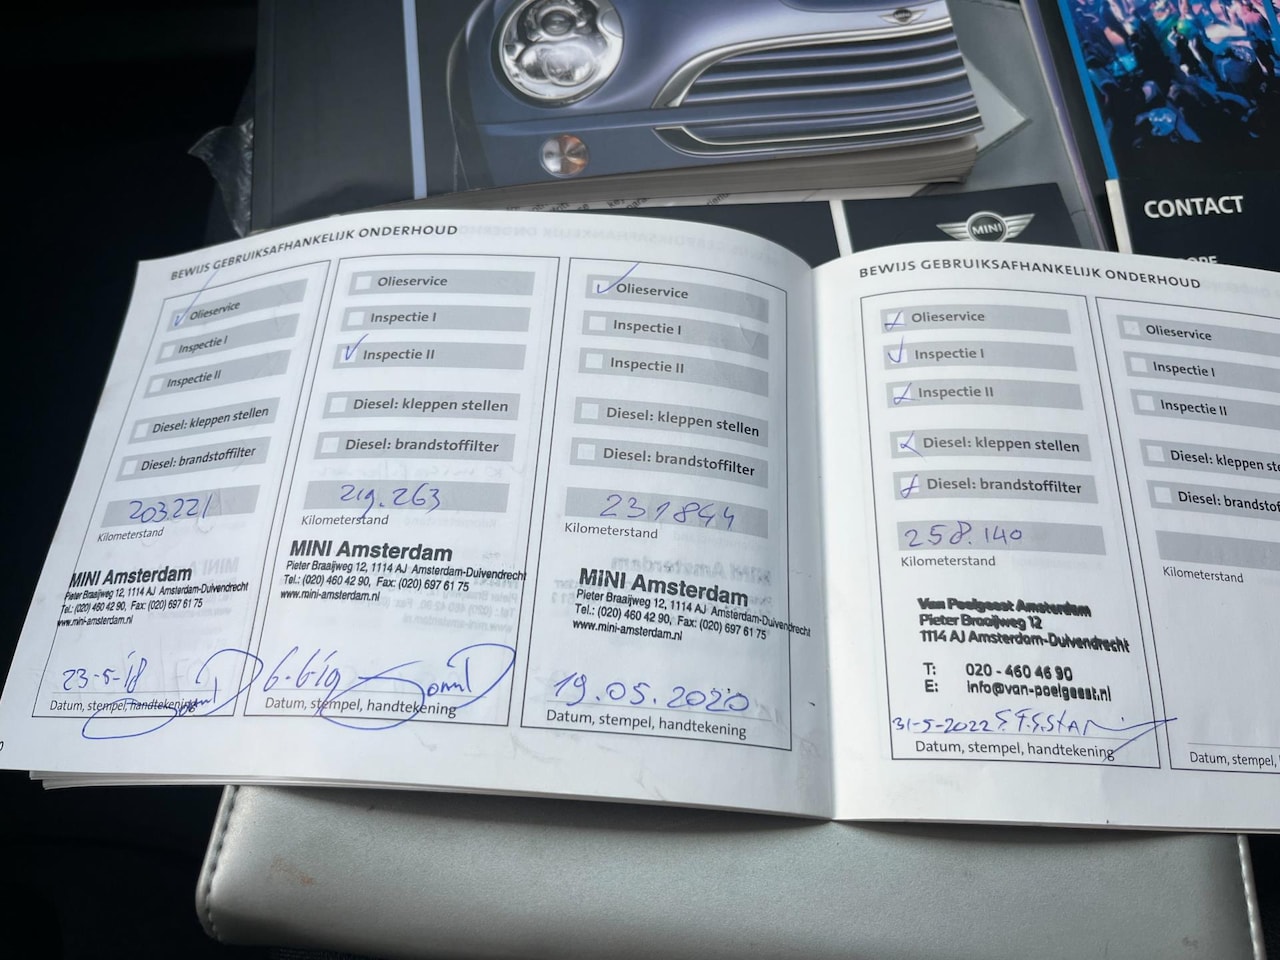 MINI
CONTACT
BEWIJS GEBRUIKSAFHANKELIJK ONDERHOUD
Olieservice
Inspectie I
Inspectie II
Diesel: kleppen stellen
Diesel: brandstoffilter
203221
Kilometerstand
MINI Amsterdam
Pieter Braaijweg 12, 1114 AJ Amsterdam-Duivendrecht
Tel.: (020) 460 42 90, Fax: (020) 697 61 75
www.mini-amsterdam.nl
23-5-'18
Datum, stempel, handtekening
Olieservice
Inspectie I
Inspectie II
Diesel: kleppen stellen
Diesel: brandstoffilter
219.263
Kilometerstand
MINI Amsterdam
Pieter Braaijweg 12, 1114 AJ Amsterdam-Duivendrecht
Tel.: (020) 460 42 90, Fax: (020) 697 61 75
www.mini-amsterdam.nl
6-6-'19
Datum, stempel, handtekening
Olieservice
Inspectie I
Inspectie II
Diesel: kleppen stellen
Diesel: brandstoffilter
231844
Kilometerstand
MINI Amsterdam
Pieter Braaijweg 12, 1114 AJ Amsterdam-Duivendrecht
Tel.: (020) 460 42 90, Fax: (020) 697 61 75
www.mini-amsterdam.nl
19.05.2020
Datum, stempel, handtekening
BEWIJS GEBRUIKSAFHANKELIJK ONDERHOUD
Olieservice
Inspectie I
Inspectie II
Diesel: kleppen stellen
Diesel: brandstoffilter
258.140
Kilometerstand
Van Poelgeest Amsterdam
Pieter Braaijweg 12
1114 AJ Amsterdam-Duivendrecht
T: 020 - 460 46 90
E: info@van-poelgeest.nl
31-5-2022
Datum, stempel, handtekening
Olieservice
Inspectie I
Inspectie II
Diesel: kleppen ste
Diesel: brandstof
Kilometerstand
Datum, stempel,